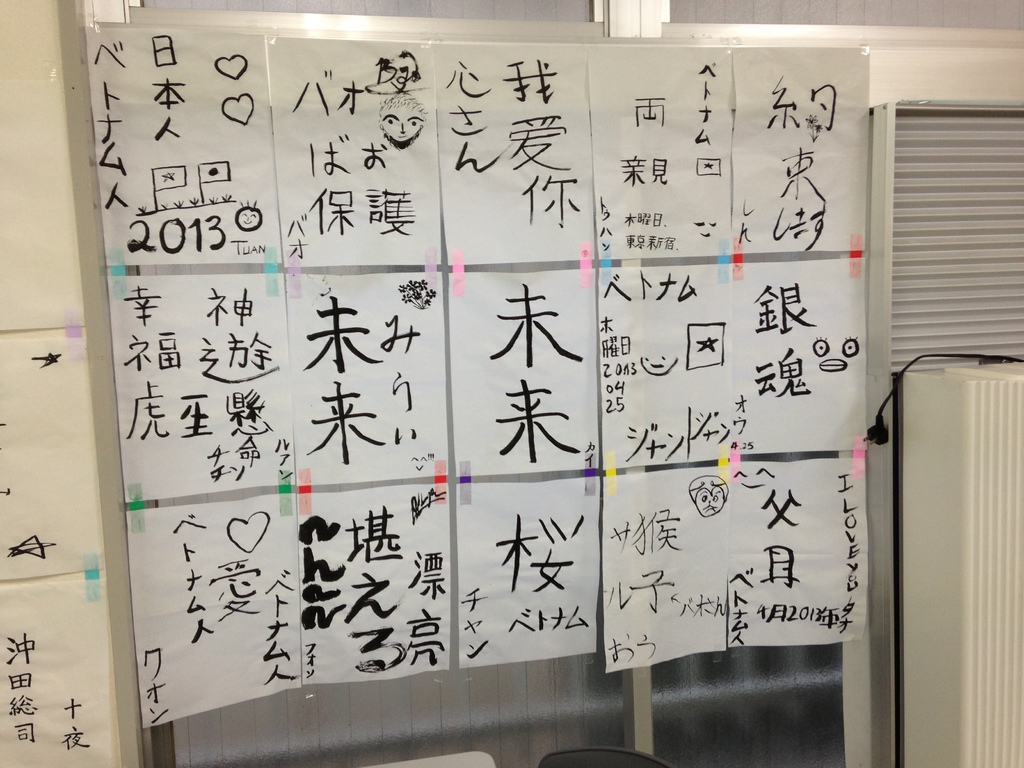 日本人
ベトナム人
2013
TUAN
Bảo
バオ
ばお
保護
バオ
我爱你
心さん
ベトナム
両親
木曜日、
東京新宿、
トゥハン
約束します
しん
神遊
幸福
虎座
懸命
ルアン
未来
みらい
未来
カイ
ベトナム
木曜日
2013
04
25
銀魂
オウ
4.25
愛
ベトナム人
ベトナム人
クオン
漂亮
堪える
フォン
桜
ベトナム
チャン
猴子
サル
バオさん
おう
I LOVE YOU
父母
4月2013年
ベトナム人
タチ
沖田総司
十夜